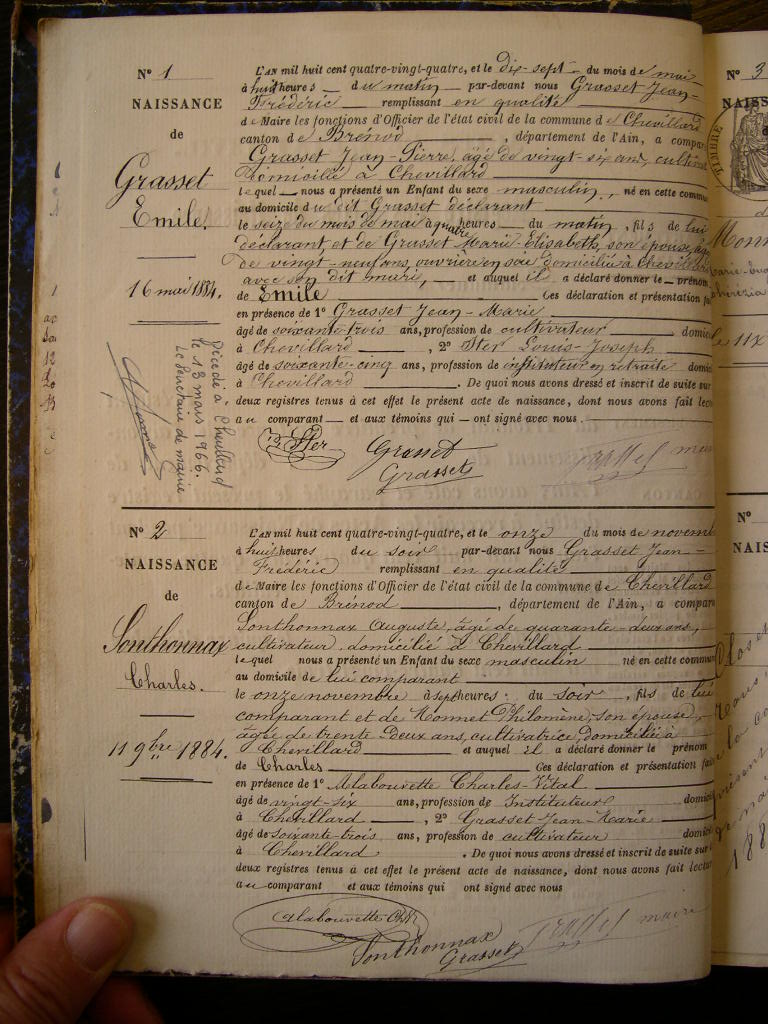 N° 1
NAISSANCE
de
Grasset
Emile.
16 mai 1884.
Décédé à Chevillard
le 13 mars 1966.
Le Secrétaire de mairie
L'AN mil huit cent quatre-vingt-quatre, et le dix-sept du mois de mai
à huit heures du matin par-devant nous Grasset Jean-
Frédéric remplissant en qualité
de Maire les fonctions d'Officier de l'état civil de la commune de Chevillard
canton de Brénod, département de l'Ain, a compar
Grasset Jean-Pierre, âgé de vingt-six ans, cultiva
domicilié à Chevillard
lequel nous a présenté un Enfant du sexe masculin, né en cette commu
au domicile du dit Grasset déclarant
le seize du mois de mai à quatre heures du matin, fils de lui
déclarant et de Grasset Marie-Elisabeth, son épouse, âgée
de vingt-neuf ans, ouvrière en soie domiciliée à Chevillard
avec son dit mari, et auquel il a déclaré donner le prénom
de Emile Ces déclaration et présentation fa
en présence de 1° Grasset Jean-Marie
âgé de soixante-trois ans, profession de cultivateur domici
à Chevillard, 2° Ster Louis-Joseph
âgé de soixante-cinq ans, profession de instituteur en retraite domici
à Chevillard. De quoi nous avons dressé et inscrit de suite sur
deux registres tenus à cet effet le présent acte de naissance, dont nous avons fait lect
au comparant et aux témoins qui ont signé avec nous.
Ster Grasset Grasset maire
Grasset
N° 2
NAISSANCE
de
Sonthonnax
Charles.
11 9bre 1884.
L'AN mil huit cent quatre-vingt-quatre, et le onze du mois de novem
à huit heures du soir par-devant nous Grasset Jean-
Frédéric remplissant en qualité
de Maire les fonctions d'Officier de l'état civil de la commune de Chevillard
canton de Brénod, département de l'Ain, a compar
Sonthonnax Auguste, âgé de quarante-deux ans,
cultivateur, domicilié à Chevillard
lequel nous a présenté un Enfant du sexe masculin né en cette commu
au domicile de lui comparant
le onze novembre à sept heures du soir, fils de lui
comparant et de Monnet Philomène, son épouse,
âgée de trente-deux ans, cultivatrice, domiciliée à
Chevillard et auquel il a déclaré donner le prénom
de Charles Ces déclaration et présentation fa
en présence de 1° Alabouvette Charles-Vital
âgé de vingt-six ans, profession de Instituteur domici
à Chevillard, 2° Grasset Jean-Marie
âgé de soixante-trois ans, profession de cultivateur domici
à Chevillard. De quoi nous avons dressé et inscrit de suite sur
deux registres tenus à cet effet le présent acte de naissance, dont nous avons fait lectu
au comparant et aux témoins qui ont signé avec nous
Alabouvette Ch. Grasset maire
Sonthonnax
Grasset
N° 3
NAISS
TIMBRE
Monn
N°
NAIS
188